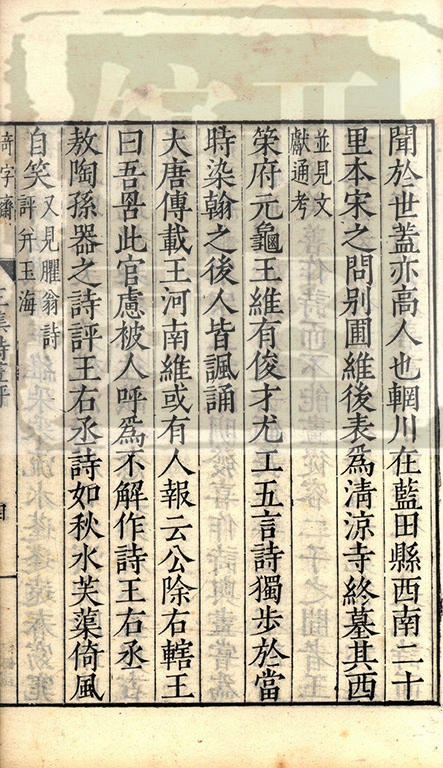 聞於世蓋亦高人也輞川在藍田縣西南二十
里本宋之問别圃維後表爲清涼寺終墓其西
並見文
獻通考
策府元龜王維有俊才尤工五言詩獨步於當
時染翰之後人皆諷誦
大唐傳載王河南維或有人報云公除右轄王
曰吾居此官慮被人呼爲不解作詩王右丞
敖陶孫器之詩評王右丞詩如秋水芙蕖倚風
自笑又見臞翁詩
評弁玉海
奇字齋